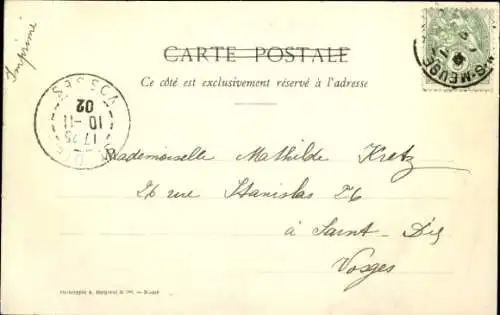 Imprimé
CARTE POSTALE
Ce côté est exclusivement réservé à l'adresse
S-MEUSE
VOSGES
02
10-11
17 25
Mademoiselle Mathilde Kretz
26 rue Stanislas 26
à Saint-Dié
Vosges